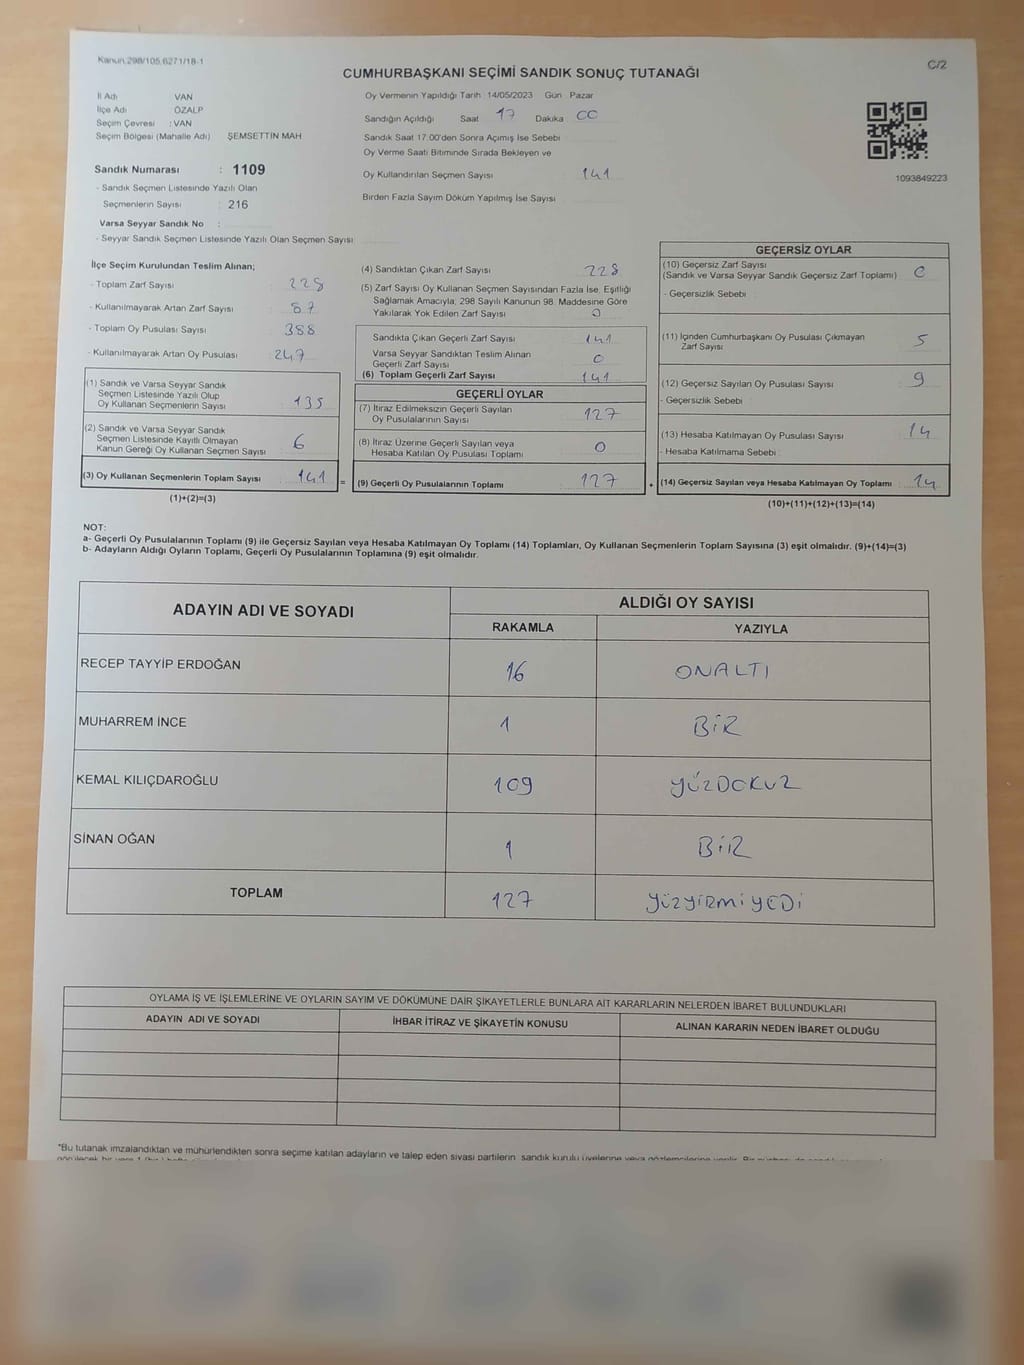 Kanun.298/105,6271/18-1
C/2
CUMHURBAŞKANI SEÇİMİ SANDIK SONUÇ TUTANAĞI
İl Adı : VAN
İlçe Adı : ÖZALP
Seçim Çevresi : VAN
Seçim Bölgesi (Mahalle Adı) ŞEMSETTİN MAH
Sandık Numarası : 1109
- Sandık Seçmen Listesinde Yazılı Olan
Seçmenlerin Sayısı : 216
Varsa Seyyar Sandık No :
- Seyyar Sandık Seçmen Listesinde Yazılı Olan Seçmen Sayısı
Oy Vermenin Yapıldığı Tarih : 14/05/2023 Gün : Pazar
Sandığın Açıldığı Saat 17 Dakika 00
Sandık Saat 17.00'den Sonra Açımış İse Sebebi
Oy Verme Saati Bitiminde Sırada Bekleyen ve
Oy Kullandırılan Seçmen Sayısı 141
Birden Fazla Sayım Döküm Yapılmış İse Sayısı
1093849223
İlçe Seçim Kurulundan Teslim Alınan;
- Toplam Zarf Sayısı 228
- Kullanılmayarak Artan Zarf Sayısı 87
- Toplam Oy Pusulası Sayısı 388
- Kullanılmayarak Artan Oy Pusulası 247
(1) Sandık ve Varsa Seyyar Sandık
Seçmen Listesinde Yazılı Olup
Oy Kullanan Seçmenlerin Sayısı 135
(2) Sandık ve Varsa Seyyar Sandık
Seçmen Listesinde Kayıtlı Olmayan
Kanun Gereği Oy Kullanan Seçmen Sayısı 6
(3) Oy Kullanan Seçmenlerin Toplam Sayısı 141 =
(1)+(2)=(3)
(4) Sandıktan Çıkan Zarf Sayısı 228
(5) Zarf Sayısı Oy Kullanan Seçmen Sayısından Fazla İse, Eşitliği
Sağlamak Amacıyla, 298 Sayılı Kanunun 98. Maddesine Göre
Yakılarak Yok Edilen Zarf Sayısı 0
Sandıkta Çıkan Geçerli Zarf Sayısı 141
Varsa Seyyar Sandıktan Teslim Alınan
Geçerli Zarf Sayısı 0
(6) Toplam Geçerli Zarf Sayısı 141
GEÇERLİ OYLAR
(7) İtiraz Edilmeksizin Geçerli Sayılan
Oy Pusulalarının Sayısı 127
(8) İtiraz Üzerine Geçerli Sayılan veya
Hesaba Katılan Oy Pusulası Toplamı 0
(9) Geçerli Oy Pusulalarının Toplamı 127 +
GEÇERSİZ OYLAR
(10) Geçersiz Zarf Sayısı
(Sandık ve Varsa Seyyar Sandık Geçersiz Zarf Toplamı) 0
- Geçersizlik Sebebi
(11) İçinden Cumhurbaşkanı Oy Pusulası Çıkmayan
Zarf Sayısı 5
(12) Geçersiz Sayılan Oy Pusulası Sayısı 9
- Geçersizlik Sebebi
(13) Hesaba Katılmayan Oy Pusulası Sayısı 14
- Hesaba Katılmama Sebebi
(14) Geçersiz Sayılan veya Hesaba Katılmayan Oy Toplamı 14
(10)+(11)+(12)+(13)=(14)
NOT:
a- Geçerli Oy Pusulalarının Toplamı (9) ile Geçersiz Sayılan veya Hesaba Katılmayan Oy Toplamı (14) Toplamları, Oy Kullanan Seçmenlerin Toplam Sayısına (3) eşit olmalıdır. (9)+(14)=(3)
b- Adayların Aldığı Oyların Toplamı, Geçerli Oy Pusulalarının Toplamına (9) eşit olmalıdır.
ADAYIN ADI VE SOYADI ALDIĞI OY SAYISI
RAKAMLA YAZIYLA
RECEP TAYYİP ERDOĞAN 16 ONALTI
MUHARREM İNCE 1 BİR
KEMAL KILIÇDAROĞLU 109 YÜZDOKUZ
SİNAN OĞAN 1 BİR
TOPLAM 127 YÜZYİRMİYEDİ
OYLAMA İŞ VE İŞLEMLERİNE VE OYLARIN SAYIM VE DÖKÜMÜNE DAİR ŞİKAYETLERLE BUNLARA AİT KARARLARIN NELERDEN İBARET BULUNDUKLARI
ADAYIN ADI VE SOYADI İHBAR İTİRAZ VE ŞİKAYETİN KONUSU ALINAN KARARIN NEDEN İBARET OLDUĞU
*Bu tutanak imzalandıktan ve mühürlendikten sonra seçime katılan adayların ve talep eden siyasi partilerin sandık kurulu üyelerine veya gözlemcilerine verilir.